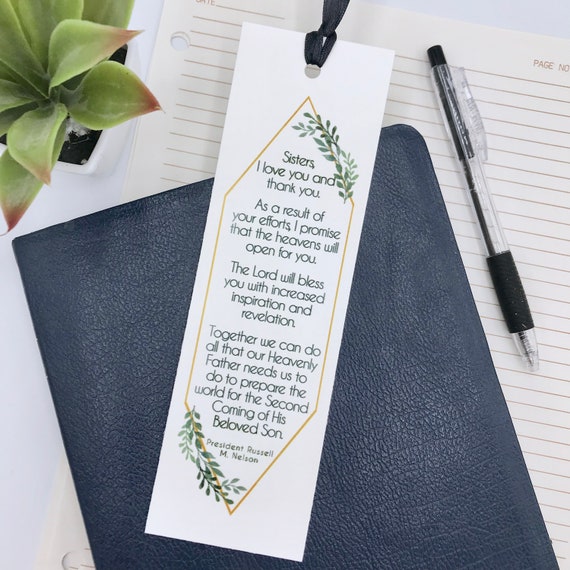 DATE
PAGE NO
Sisters,
I love you and
thank you.
As a result of
your efforts, I promise
that the heavens will
open for you.
The Lord will bless
you with increased
inspiration and
revelation.
Together we can do
all that our Heavenly
Father needs us to
do to prepare the
world for the Second
Coming of His
Beloved Son.
President Russell
M. Nelson